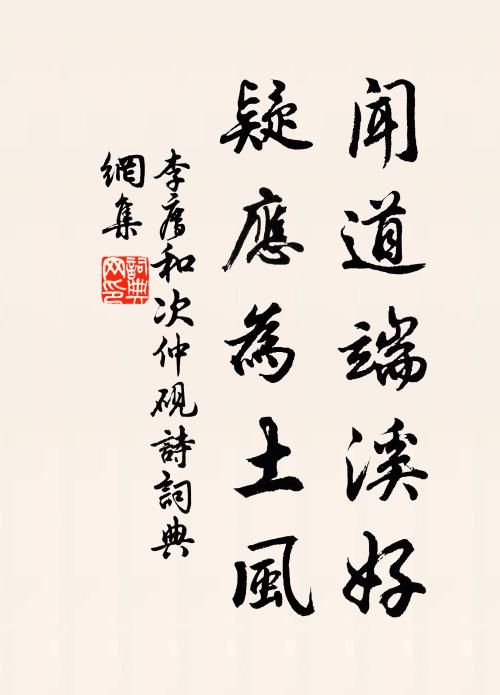 聞道端溪好
疑應為土風
李廌和次仲硯詩詞典
網集
詞典
网印